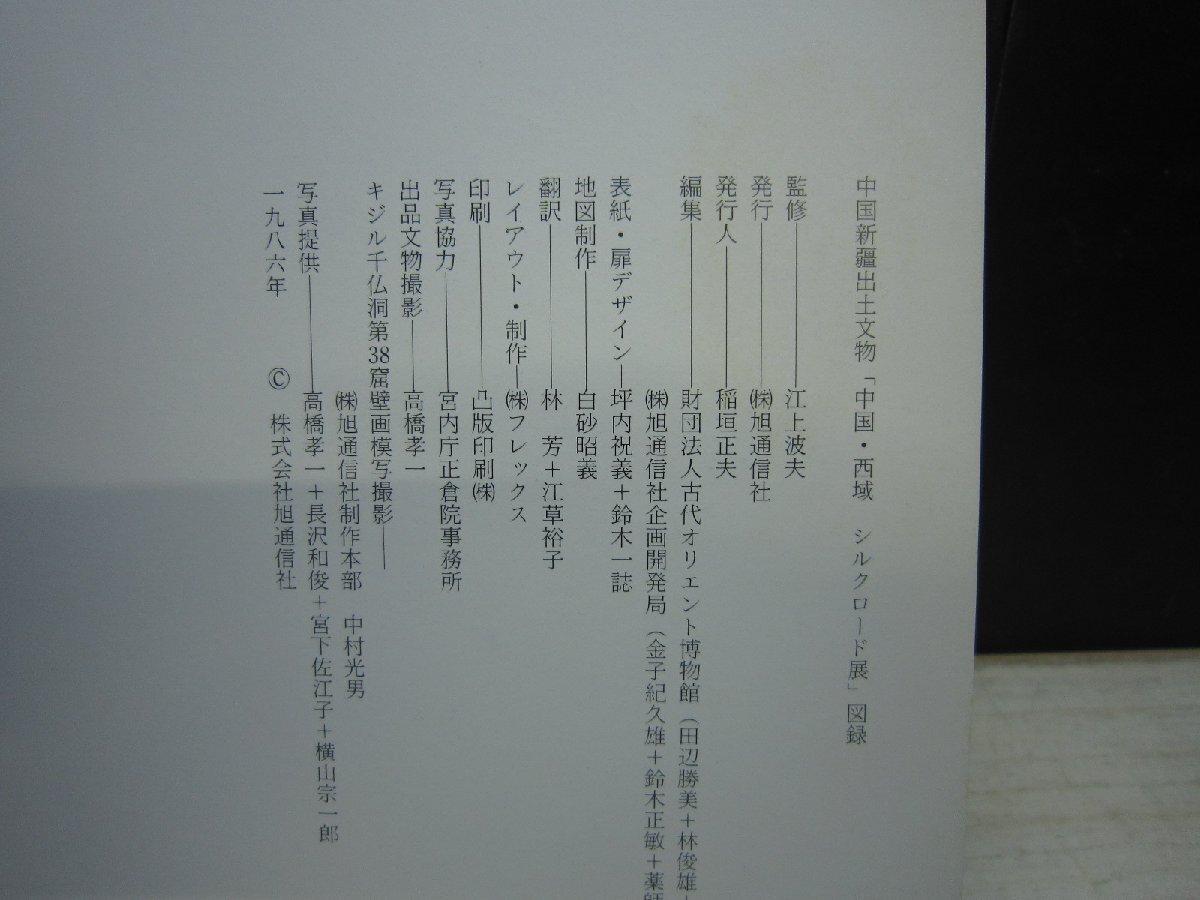 中国新疆出土文物「中国・西域　シルクロード展」図録
監修――江上波夫
発行――㈱旭通信社
発行人――稲垣正夫
編集――財団法人古代オリエント博物館（田辺勝美＋林俊雄＋
㈱旭通信社企画開発局（金子紀久雄＋鈴木正敏＋薬師
表紙・扉デザイン―坪内祝義＋鈴木一誌
地図制作――白砂昭義
翻訳――林　芳＋江草裕子
レイアウト・制作―㈱フレックス
印刷――凸版印刷㈱
写真協力――宮内庁正倉院事務所
出品文物撮影――高橋孝一
キジル千仏洞第38窟壁画模写撮影――
㈱旭通信社制作本部　中村光男
写真提供――高橋孝一＋長沢和俊＋宮下佐江子＋横山宗一郎
一九八六年　Ⓒ　株式会社旭通信社